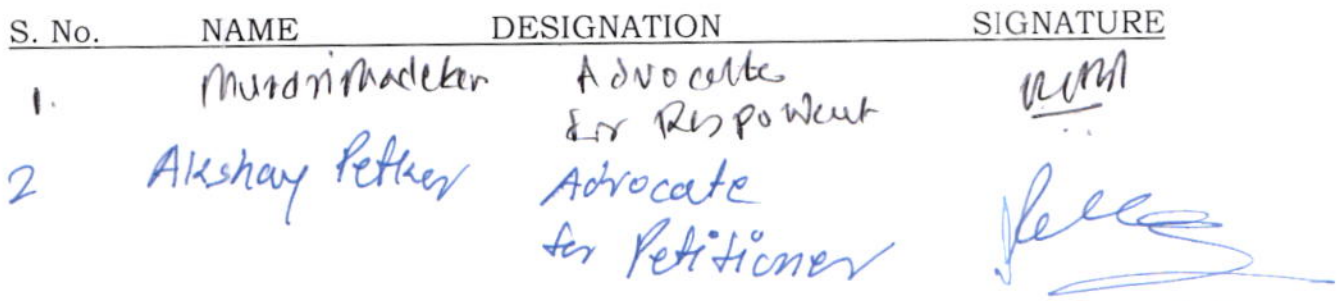 S. No. NAME DESIGNATION SIGNATURE
1. Advocate
for Respondent
2 Akshay Petker Advocate
for Petitioner